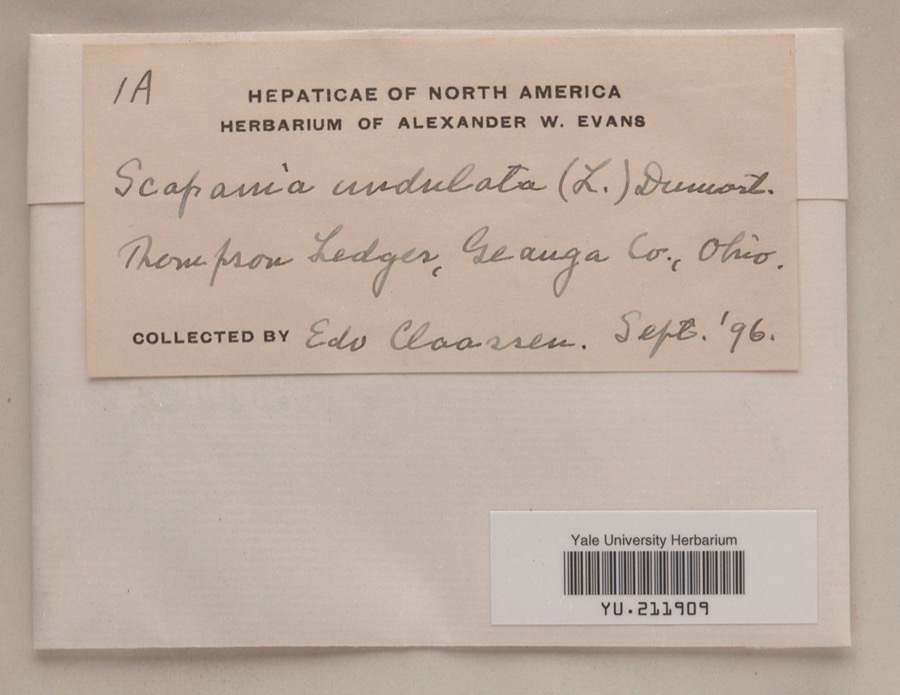 1A
HEPATICAE OF NORTH AMERICA
HERBARIUM OF ALEXANDER W. EVANS
Scapania undulata (L.) Dumort.
Thompson Ledger, Geauga Co., Ohio.
COLLECTED BY Edo Claassen. Sept. '96.
Yale University Herbarium
YU.211909